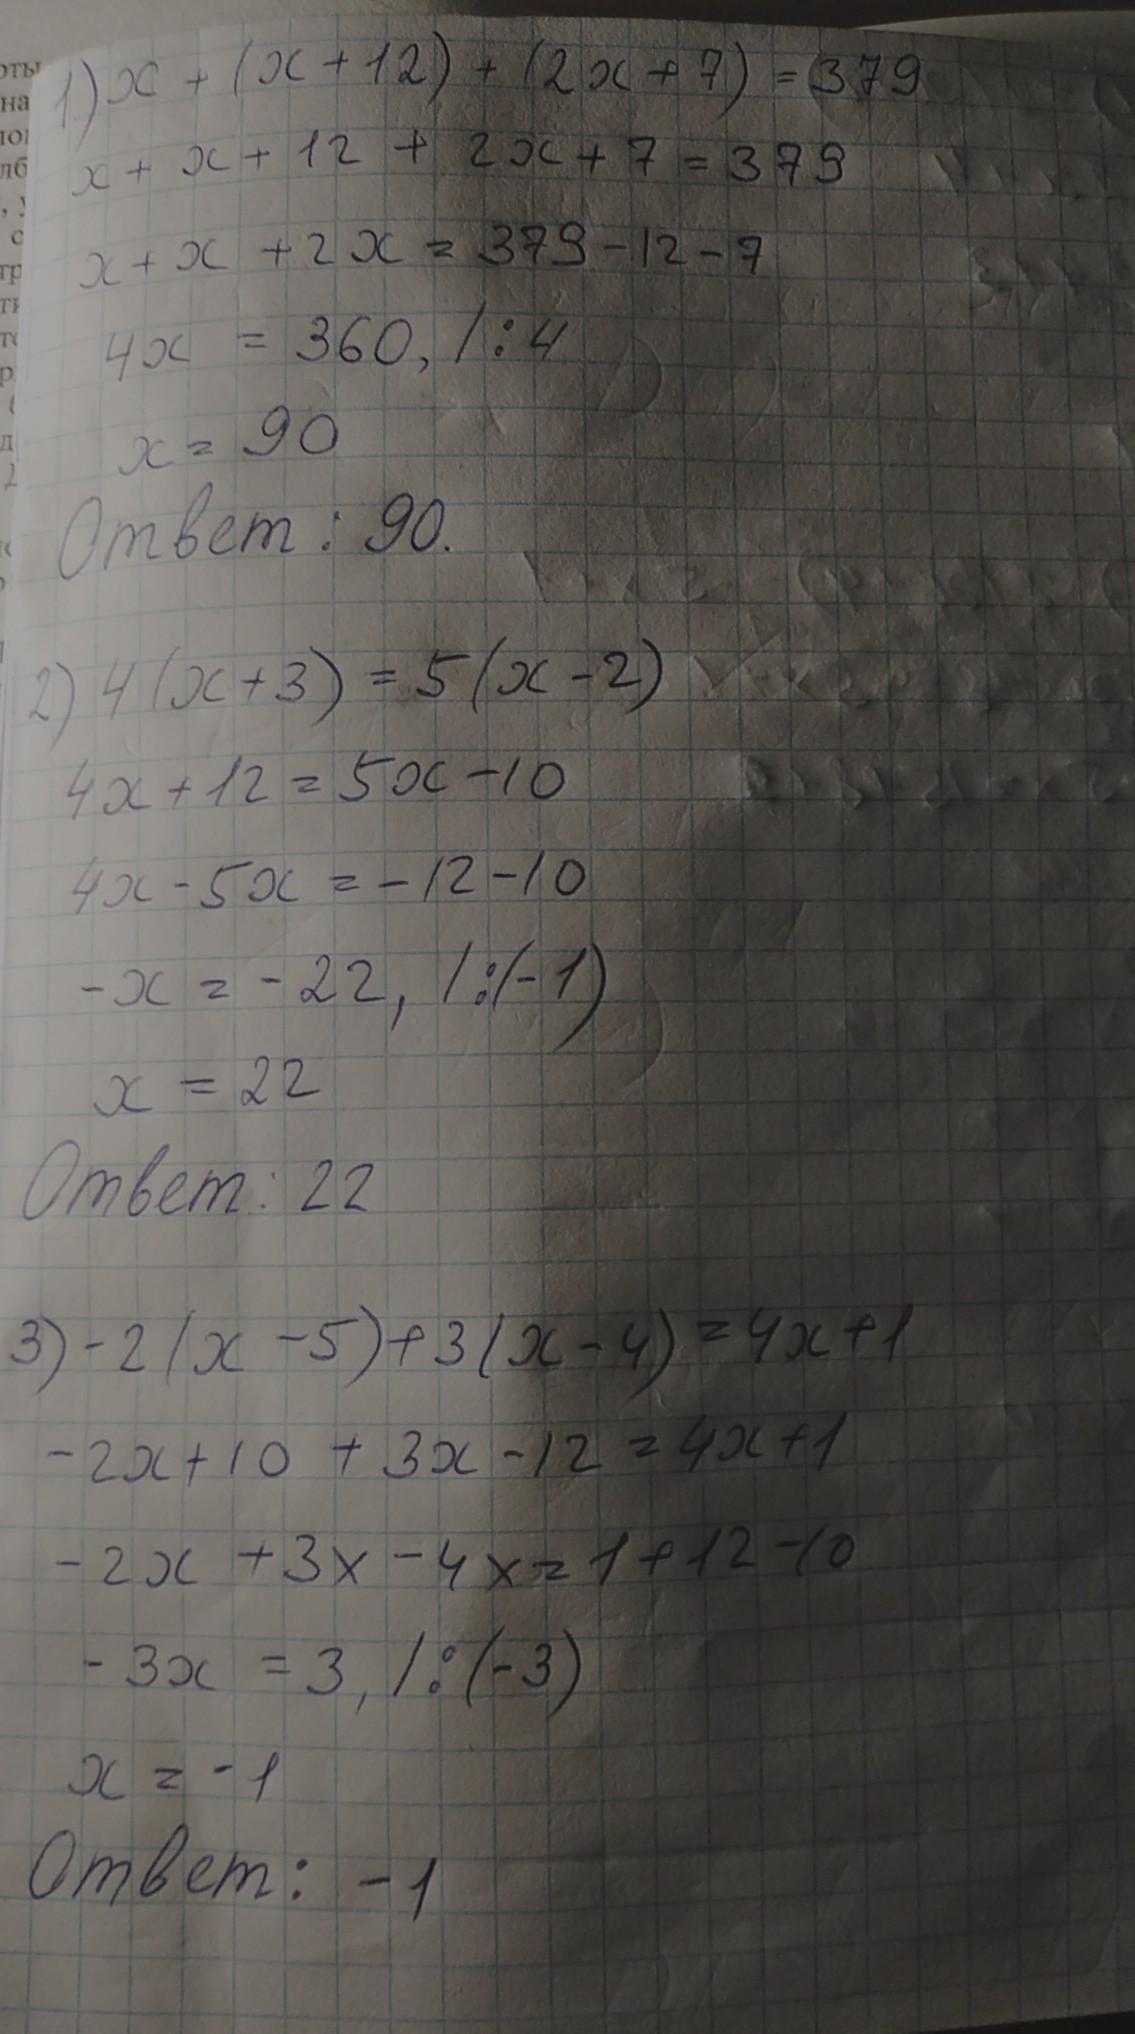 1.) x + (x + 12) + (2x + 7) = 379
x + x + 12 + 2x + 7 = 379
x + x + 2x = 379 - 12 - 7
4x = 360, /:4
x = 90
Ответ: 90.
2) 4(x+3) = 5(x-2)
4x + 12 = 5x - 10
4x - 5x = -12 - 10
-x = -22, /:(-1)
x = 22
Ответ: 22
3) -2(x - 5) + 3(x - 4) = 4x + 1
-2x + 10 + 3x - 12 = 4x + 1
-2x + 3x - 4x = 1 + 12 - 10
-3x = 3, /:(-3)
x = -1
Ответ: -1